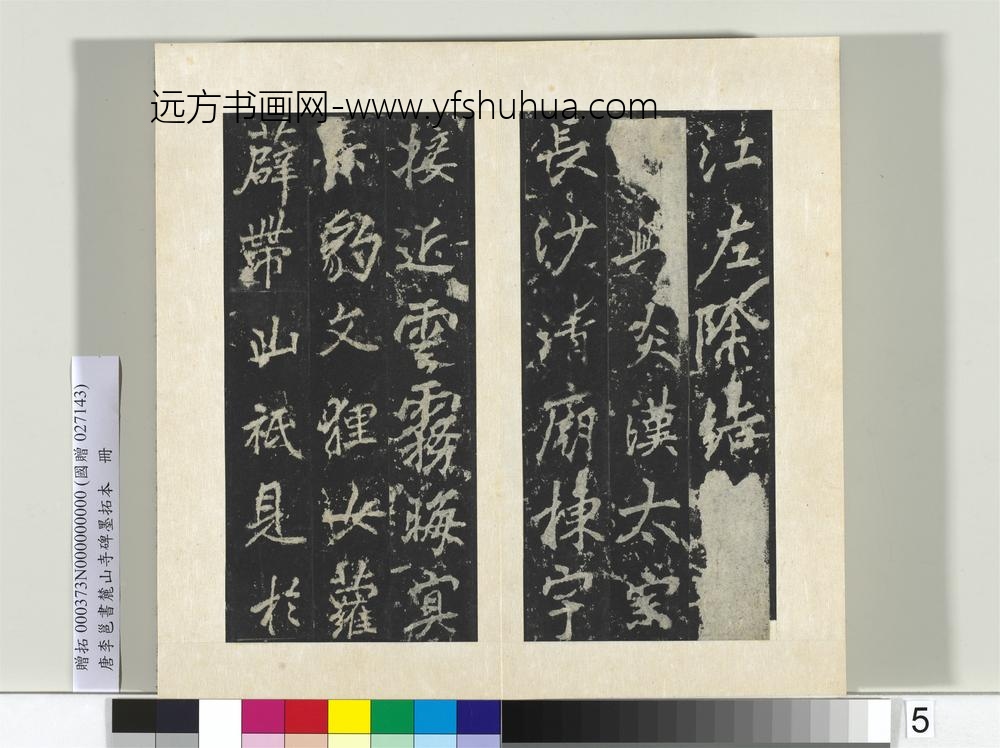 远方书画网-www.yfshuhua.com
江左除結
與炎漢太宗
長沙清廟棟宇
接近雲霧晦冥
赤豹文狸女蘿
薜帶山祇見於
贈拓 000373N000000000 (國贈 027143)
唐李邕書麓山寺碑墨拓本 冊
5